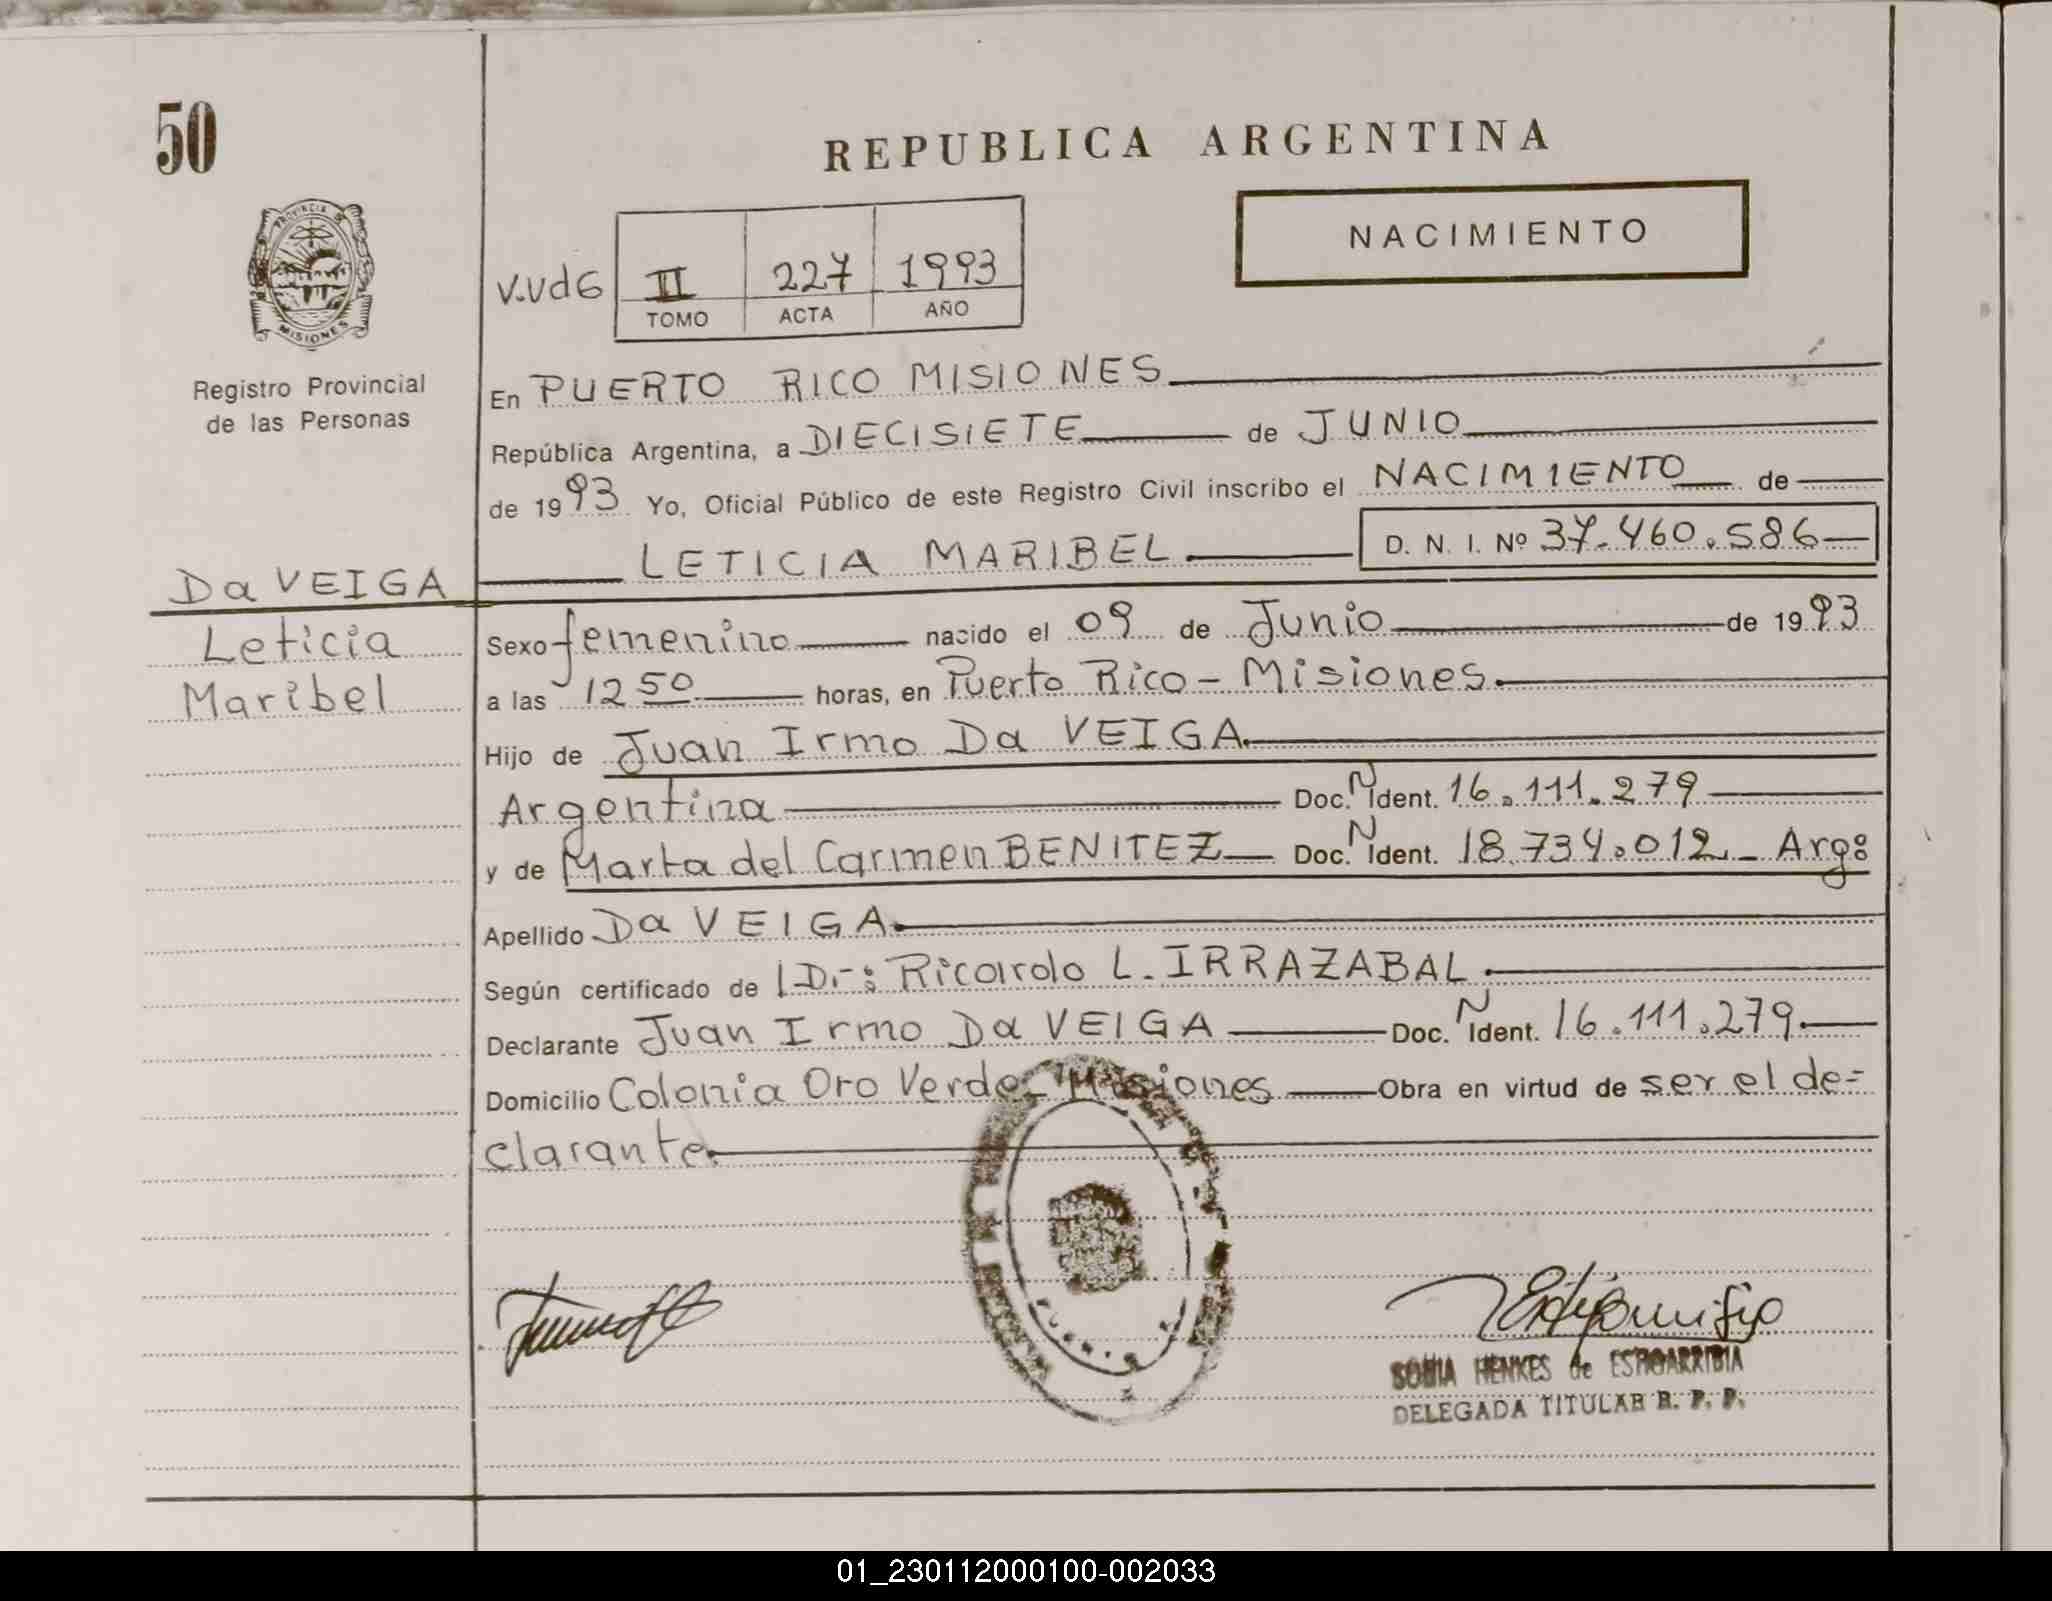 50
REPUBLICA ARGENTINA
NACIMIENTO
PROVINCIA DE
MISIONES
Registro Provincial
de las Personas
V.Ud6 II 227 1993
TOMO ACTA AÑO
En PUERTO RICO MISIONES
República Argentina, a DIECISIETE de JUNIO
de 1993 Yo, Oficial Público de este Registro Civil inscribo el NACIMIENTO de
LETICIA MARIBEL D. N. I. Nº 37.460.586
Da VEIGA
Leticia
Maribel
Sexo femenino nacido el 09 de Junio de 1993
a las 12 50 horas, en Puerto Rico - Misiones.
Hijo de Juan Irmo Da VEIGA.
Argentina Doc. N Ident. 16.111.279
y de Marta del Carmen BENITEZ Doc. N Ident. 18.734.012 - Arg:
Apellido Da VEIGA.
Según certificado de Dr: Ricardo L. IRRAZABAL.
Declarante Juan Irmo Da VEIGA Doc. N Ident. 16.111.279.
Domicilio Colonia Oro Verde - Misiones Obra en virtud de ser el de=
clarante.
SONIA HENKES de ESTIGARRIBIA
DELEGADA TITULAR R. P. P.
01_230112000100-002033